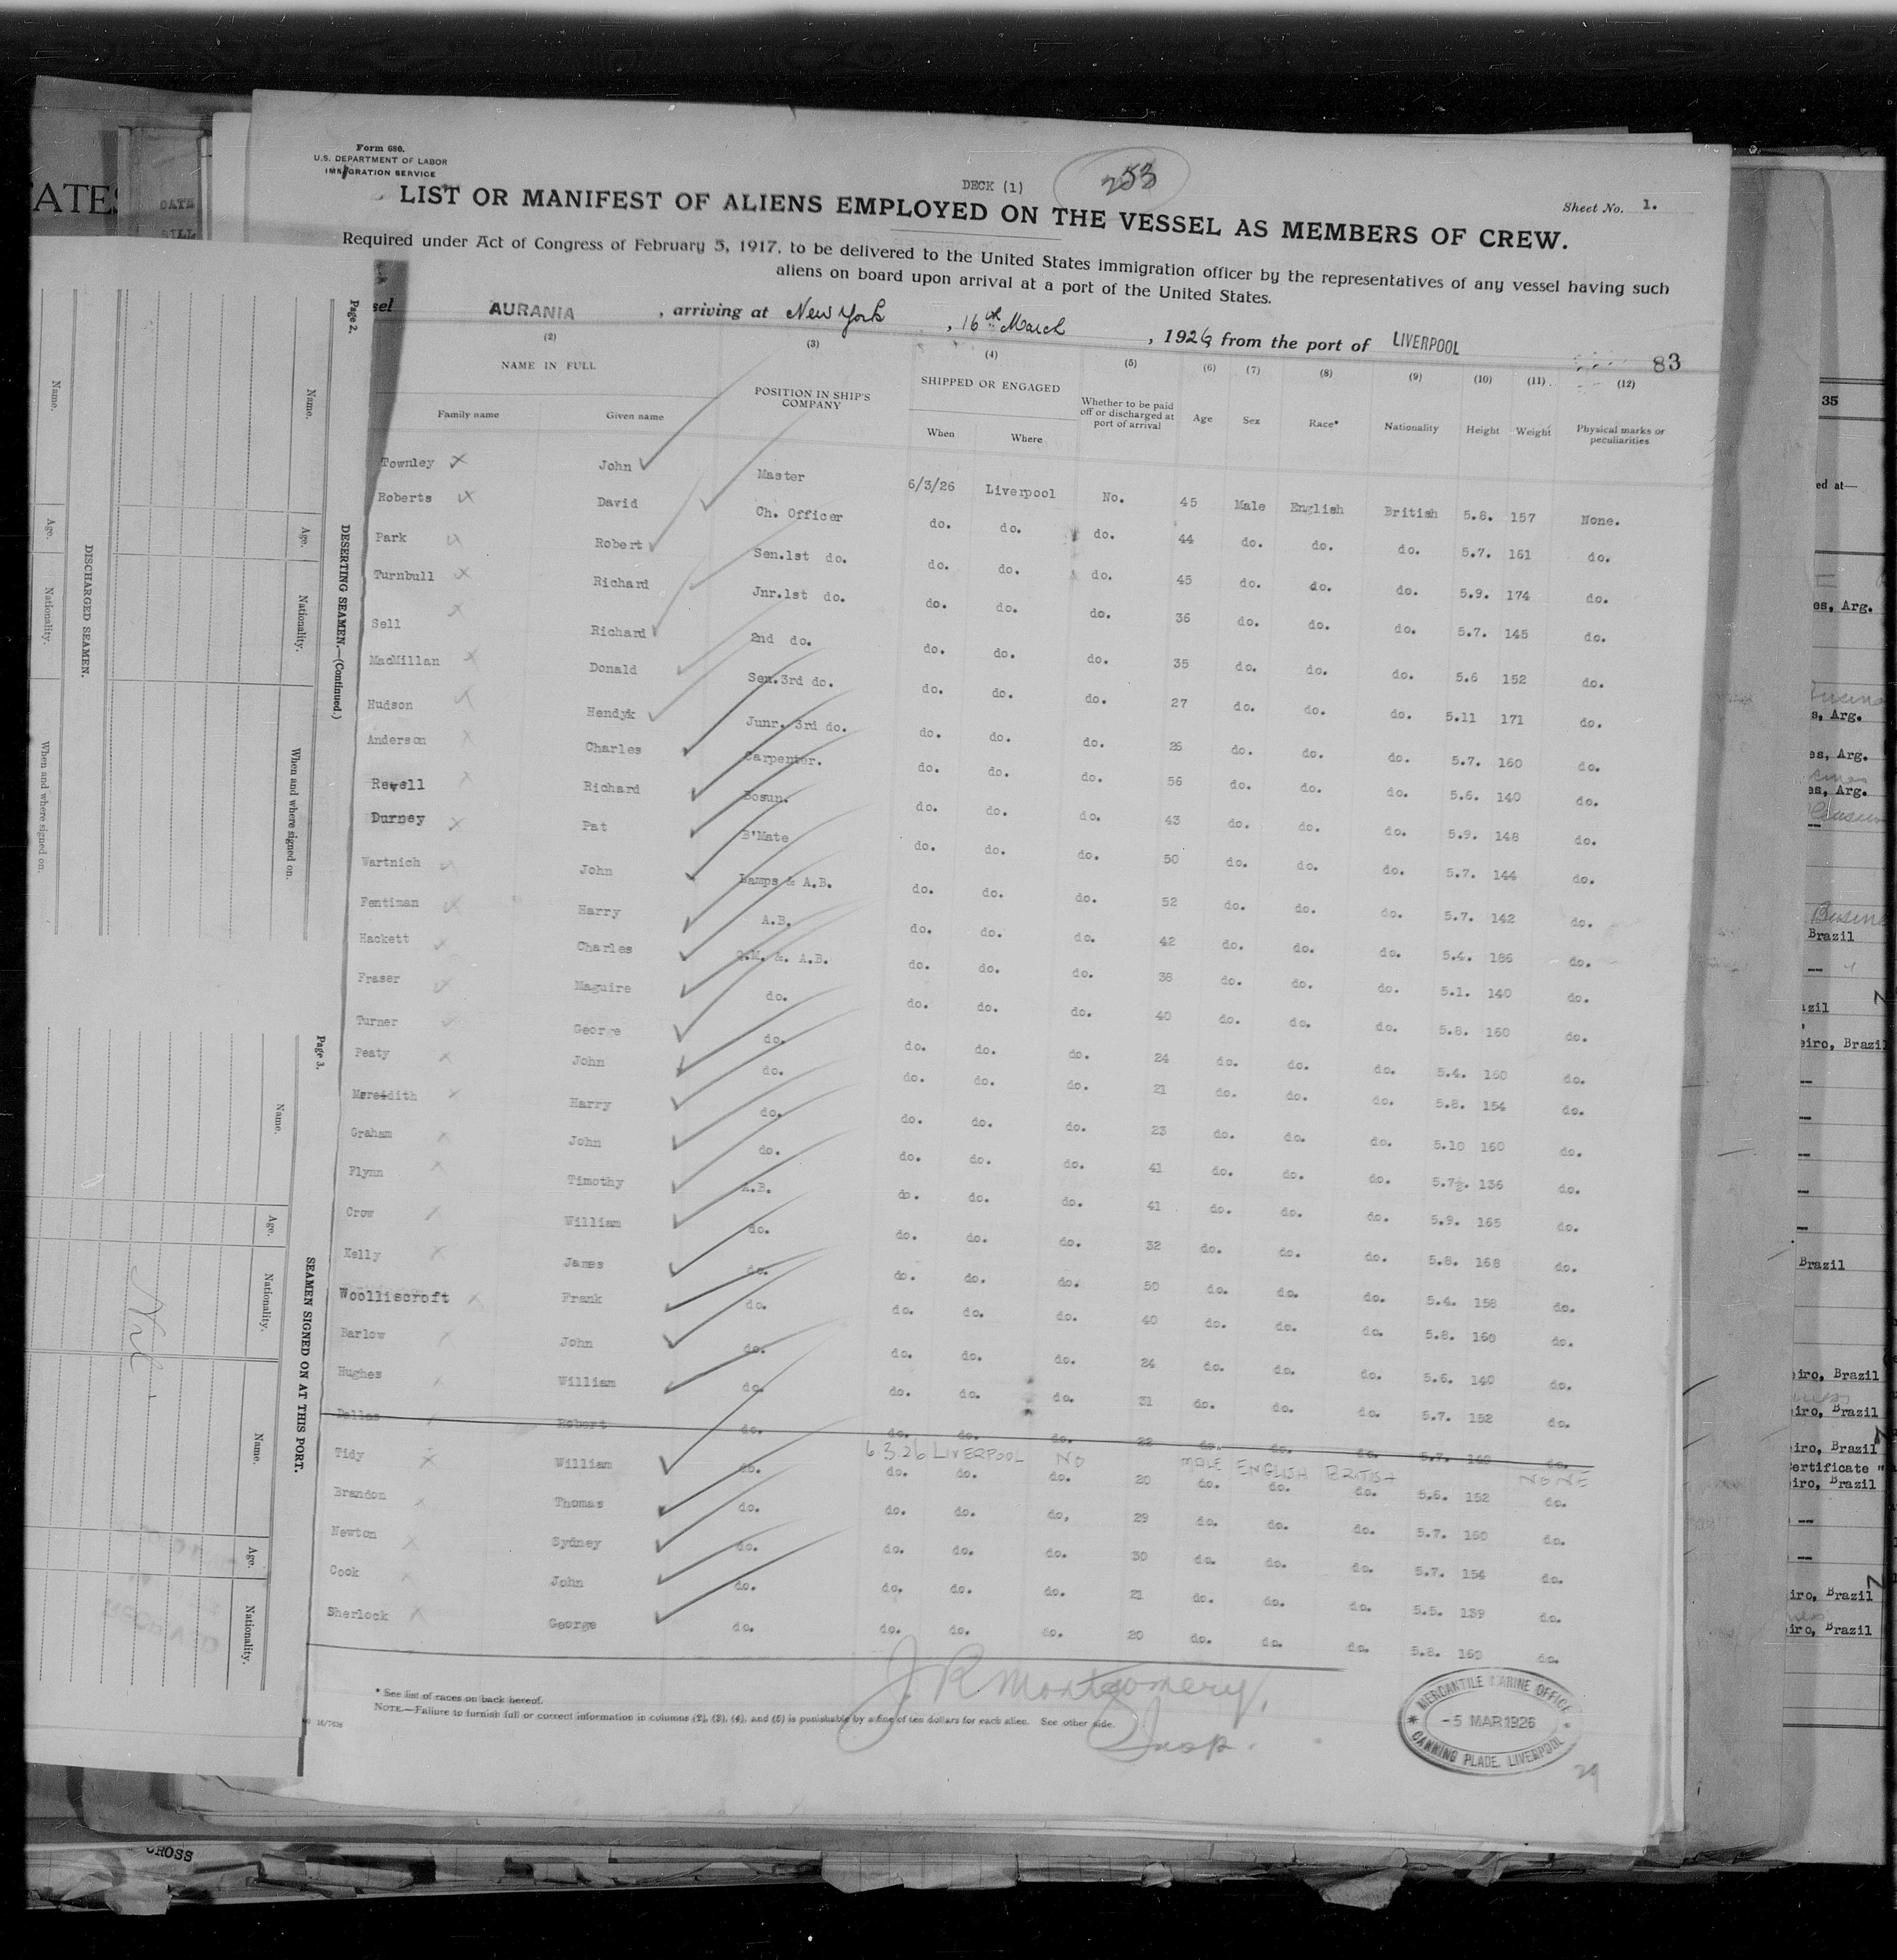 Form 680.
U.S. DEPARTMENT OF LABOR
IMMIGRATION SERVICE
DECK (1)
253
Sheet No. 1.
LIST OR MANIFEST OF ALIENS EMPLOYED ON THE VESSEL AS MEMBERS OF CREW.
Required under Act of Congress of February 5, 1917, to be delivered to the United States immigration officer by the representatives of any vessel having such
aliens on board upon arrival at a port of the United States.
sel AURANIA, arriving at New York, 16th March, 1926 from the port of LIVERPOOL
83
(2) (3) (4) (5) (6) (7) (8) (9) (10) (11) (12)
NAME IN FULL POSITION IN SHIP'S COMPANY SHIPPED OR ENGAGED Whether to be paid off or discharged at port of arrival Age Sex Race* Nationality Height Weight Physical marks or peculiarities
Family name Given name When Where
Townley John Master 6/3/26 Liverpool No. 45 Male English British 5.8. 157 None.
Roberts David Ch. Officer do. do. do. 44 do. do. do. 5.7. 161 do.
Park Robert Sen.1st do. do. do. do. 45 do. do. do. 5.9. 174 do.
Turnbull Richard Jnr.1st do. do. do. do. 36 do. do. do. 5.7. 145 do.
Sell Richard 2nd do. do. do. do. 35 do. do. do. 5.6 152 do.
MacMillan Donald Sen.3rd do. do. do. do. 27 do. do. do. 5.11 171 do.
Hudson Hendyk Junr. 3rd do. do. do. do. 26 do. do. do. 5.7. 160 do.
Anderson Charles Carpenter. do. do. do. 56 do. do. do. 5.6. 140 do.
Revell Richard Bosun. do. do. do. 43 do. do. do. 5.9. 148 do.
Durney Pat B'Mate do. do. do. 50 do. do. do. 5.7. 144 do.
Wartnich John Lamps & A.B. do. do. do. 52 do. do. do. 5.7. 142 do.
Fentiman Harry A.B. do. do. do. 42 do. do. do. 5.4. 186 do.
Hackett Charles Q.M. &. A.B. do. do. do. 38 do. do. do. 5.1. 140 do.
Fraser Maguire do. do. do. do. 40 do. do. do. 5.8. 160 do.
Turner George do. do. do. do. 24 do. do. do. 5.4. 160 do.
Peaty John do. do. do. do. 21 do. do. do. 5.8. 154 do.
Meredith Harry do. do. do. do. 23 do. do. do. 5.10 160 do.
Graham John do. do. do. do. 41 do. do. do. 5.7½. 136 do.
Flynn Timothy A.B. do. do. do. 41 do. do. do. 5.9. 165 do.
Crow William do. do. do. do. 32 do. do. do. 5.8. 168 do.
Kelly James do. do. do. do. 50 do. do. do. 5.4. 158 do.
Woolliscroft Frank do. do. do. do. 40 do. do. do. 5.8. 160 do.
Barlow John do. do. do. do. 24 do. do. do. 5.6. 140 do.
Hughes William do. do. do. do. 31 do. do. do. 5.7. 152 do.
Dallas Robert do. do. do. do. 22 do. do. do. 5.7. 140 do.
6.3.26 LIVERPOOL NO MALE ENGLISH BRITISH NONE
Tidy William do. do. do. do. 20 do. do. do. 5.6. 152 do.
Brandon Thomas do. do. do. do. 29 do. do. do. 5.7. 160 do.
Newton Sydney do. do. do. do. 30 do. do. do. 5.7. 154 do.
Cook John do. do. do. do. 21 do. do. do. 5.5. 139 do.
Sherlock George do. do. do. do. 20 do. do. do. 5.8. 160 do.
J R Montgomery,
Insp.
* See list of races on back hereof.
NOTE.—Failure to furnish full or correct information in columns (2), (3), (4), and (5) is punishable by a fine of ten dollars for each alien. See other side.
MERCANTILE MARINE OFFICE
-5 MAR 1926
CANNING PLACE, LIVERPOOL
29
Page 2.
DESERTING SEAMEN.—(Continued.)
Name. Age. Nationality. When and where signed on.
DISCHARGED SEAMEN.
Name. Age. Nationality. When and where signed on.
Page 3.
SEAMEN SIGNED ON AT THIS PORT.
Name. Age. Nationality. Name. Age. Nationality.
Nil
ATES
35
ed at—
es, Arg.
s, Arg.
es, Arg.
es, Arg.
Brazil
azil
eiro, Brazil
Brazil
eiro, Brazil
iro, Brazil
iro, Brazil
ertificate
iro, Brazil
iro, Brazil
iro, Brazil
CROSS